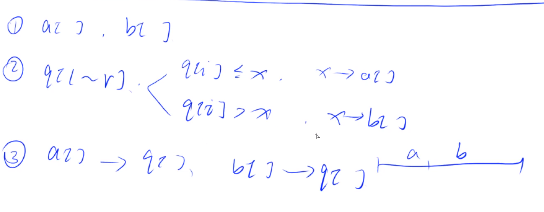 ① a[ ] , b[ ]
② q[l~r]. q[i] ≤ x. x→a[ ]
q[i] > x . x→b[ ]
③ a[ ] → q[ ], b[ ] → q[ ] a b